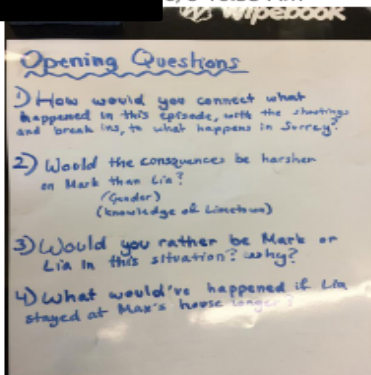 wipebook
Opening Questions
1) How would you connect what
happened in this episode, with the shootings
and break ins, to what happens in Surrey?
2) Would the consquences be harsher
on Mark than Lia?
(Gender)
(knowledge of Limetown)
3) Would you rather be Mark or
Lia in this situation? why?
4) What would've happened if Lia
stayed at Max's house longer?